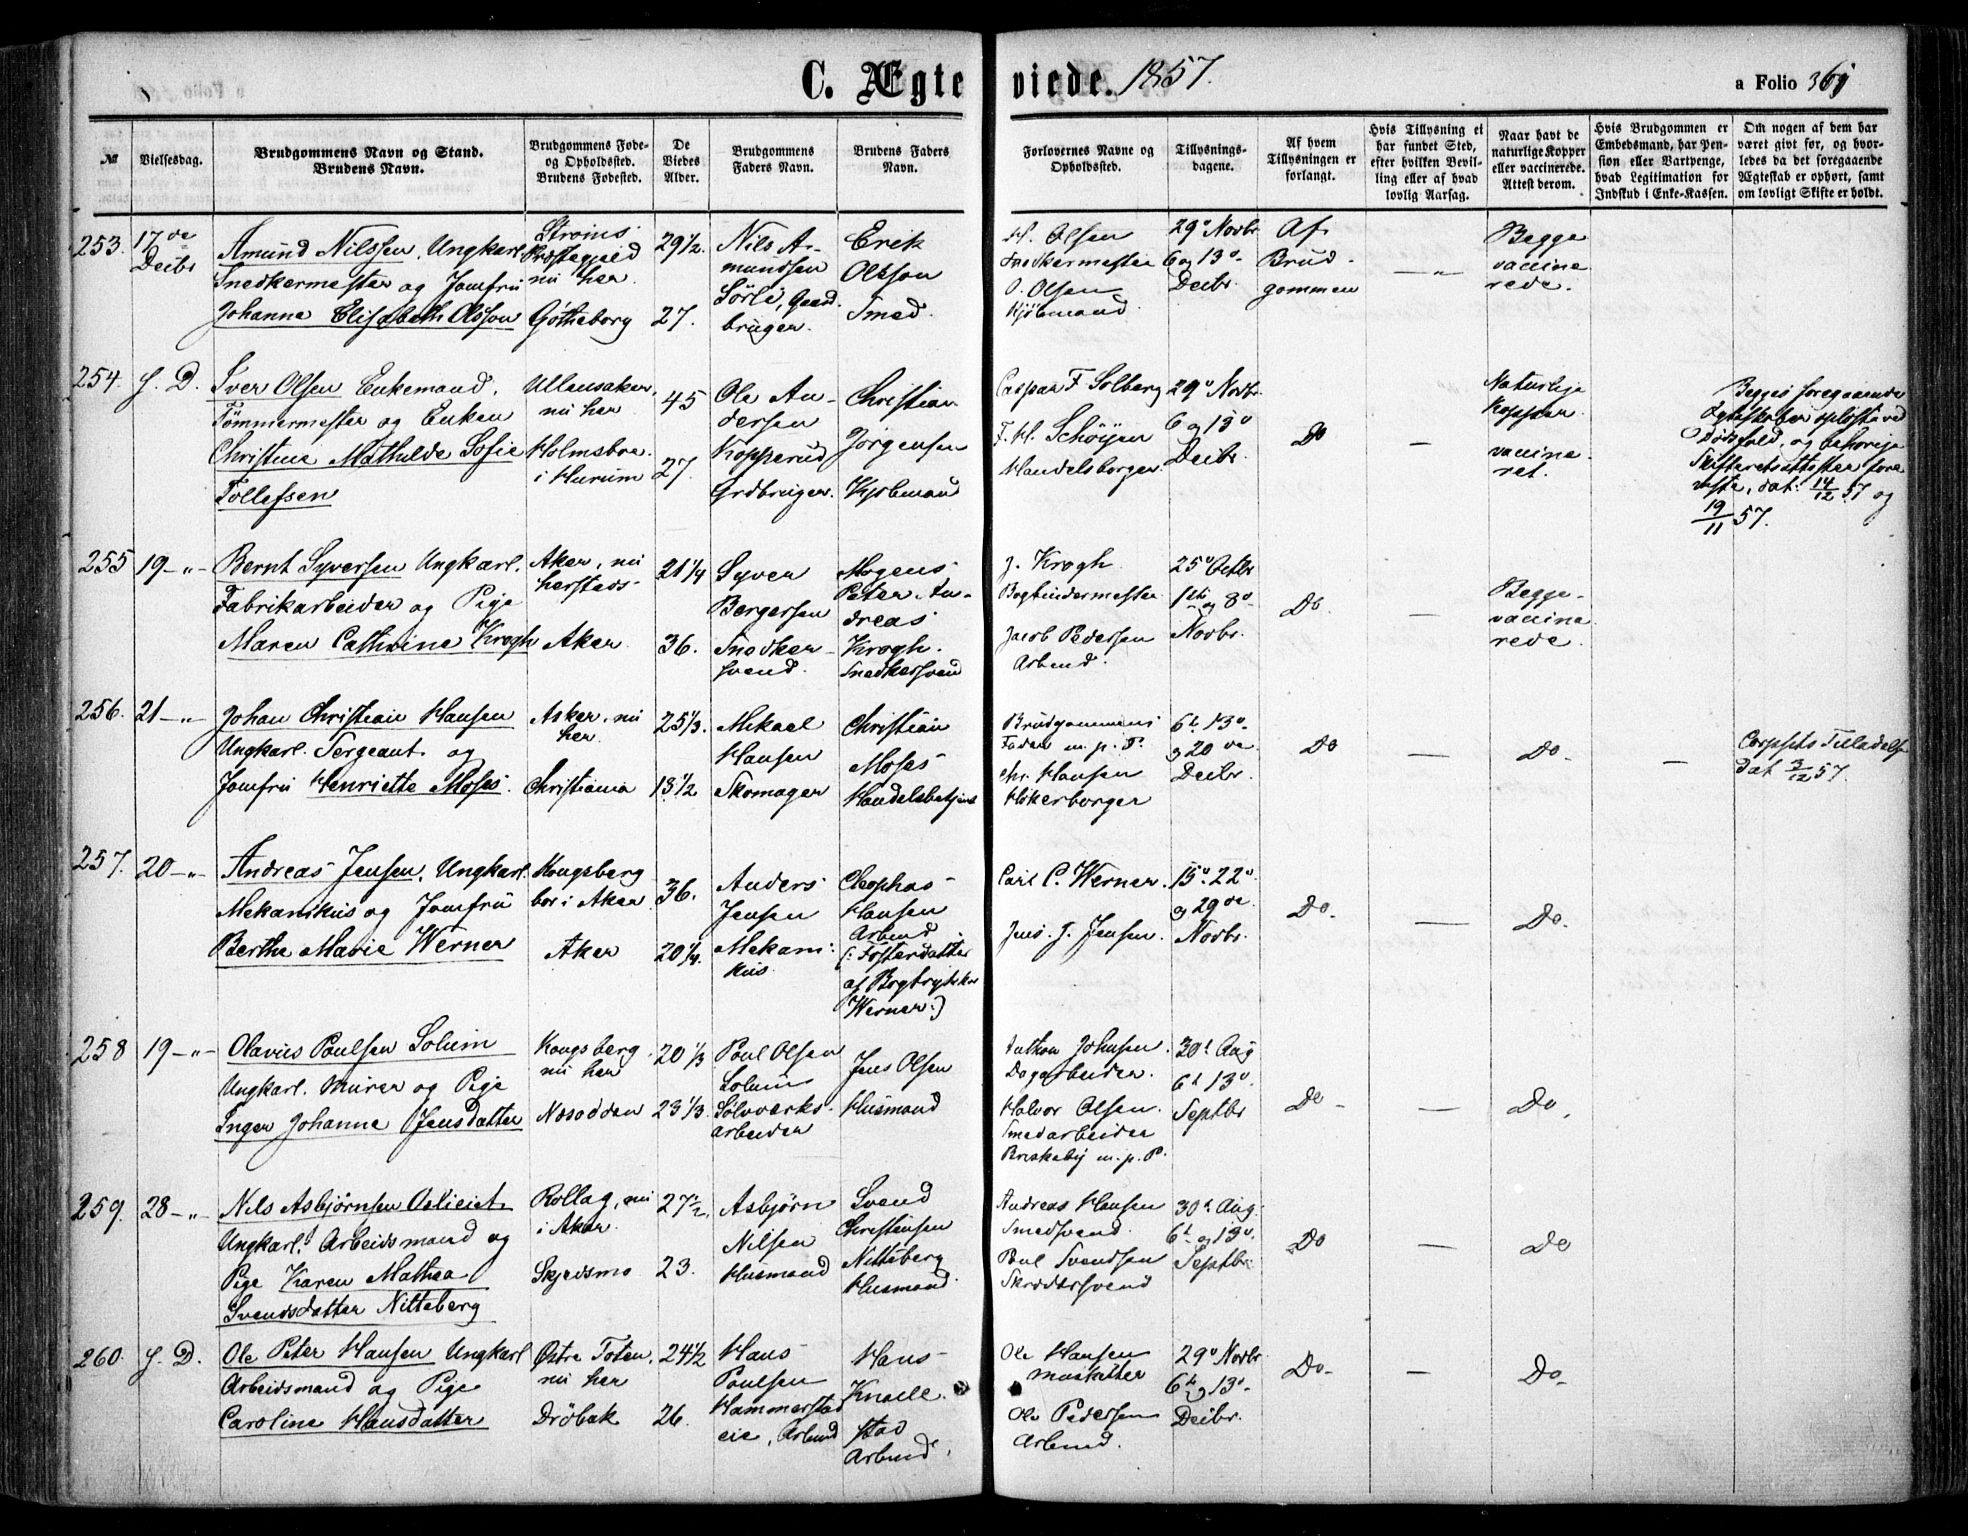 C. Ægteviede. 1857. a Folio 361
№
Vielsesdag.
Brudgommens Navn og Stand.
Brudens Navn.
Brudgommens Føde-
og Opholdssted.
Brudens Fødested.
De
Viedes
Alder.
Brudgommens
Faders Navn.
Brudens Faders
Navn.
Forlovernes Navne og
Opholdssted.
Tillysnings-
dagene.
Af hvem
Tillysningen er
forlangt.
Hvis Tillysning ei
har fundet Sted,
efter hvilken Bevil-
ling eller af hvad
lovlig Aarsag.
Naar havt de
naturlige Kopper
eller vaccinerede.
Attest derom.
Hvis Brudgommen er
Embedsmand, har Pen-
sion eller Vartpenge,
hvad Legitimation for
Indskud i Enke-Kassen.
Om nogen af dem har
været gift før, og hvor-
ledes da det foregaaende
Ægteskab er ophørt, samt
om lovligt Skifte er holdt.
253. 17de Decbr
Amund Nilssen, Ungkarl
Snedkermester og Jomfru
Johanna Elisabeth Olsson
Præstegjeld
nu her
Gøtheborg
29 1/2
27.
Nils A-
mundsen
Sørli, Gaard-
bruger.
Erik
Olsson
Smed.
H. Olsen
Snedkermester
O. Olsen
Kjøbmand
29o Novbr
6 og 13o
Decbr
Af
Brud-
gommen
— „
Begge
vaccine
rede.
254. s. D.
Iver Olsen Enkemand,
Tømmermester og Enken
Christine Mathilde Sofie
Tollefsen
Ullensaker,
nu her
Holmsboe
i Hurum
45
27.
Ole An-
dersen
Kopperud
Grdbruger.
Christian
Jørgensen
Kjøbmand
Caspar F. Solberg
F. H. Schøyen
Handelsborger
29o Novbr
6 og 13o
Decbr.
Do
—
Naturlige
Kopper
vaccine
ret.
Begges foregaaende
Ægteskaber opløste ved
Dødsfald, og behørige
Skifteretsattester fore
viste, dat. 14/12 57 og
19/11 57.
255 19-„-
Bernt Syversen Ungkarl.
Fabrikarbeider og Pige
Maren Cathrine Krogh
Aker, nu
hersteds
Aker
21 1/4
36.
Syver
Bergersen
Snedker-
svend.
Mogens
Peter An-
dreas
Krogh.
Snedkersvend
J. Krogh
Bogbindermester
Jacob Pedersen
Arbmd.
25o Octbr
1ste og 8o
Novbr.
Do
—
Begge
vaccine
rede.
256. 21-„-
Johan Christian Hansen
Ungkarl. Sergeant. og
Jomfru Henriette Moses.
Asker, nu
her.
Christiania
25 1/3.
18 1/2
Mekael
Hansen
Skomager
Christian
Moses
Handelsbetjent
Brudgommens
Fader m. p. P.
Chr. Hansen
Høkerborger
6t 13o
og 20de
Decbr.
Do
—
Do.
—
Corpsets Tilladelse
dat 3/12 57.
257. 20-„-
Andreas Jensen, Ungkarl.
Mekanikus og Jomfru
Berthe Marie Werner
Kongsberg
bor i Aker
Aker
36.
20 1/4.
Anders
Jensen
Mekani-
kus
Cleophas
Hansen
Arbmd
(: Fosterdatter
af Bogtrykker
Werner:)
Carl C. Werner.
Jens. J. Jensen.
15o 22o
og 29de
Novbr.
Do.
—
Do.
258 19-„-
Olavus Paulsen Solum
Ungkarl. Murer og Pige
Inger Johanne Jensdatter
Kongsberg,
nu her
Næsodden
20 1/3
23 1/3.
Poul Olsen
Solum
Sølvværks-
arbeider
Jens Olsen
Husmand
Johnsen.
Dagarbeider.
Halvor Olsen.
Smedarbeider
Briskeby m. p. P.
30t Aug
6t 13o.
Septbr
Do -
—
Do.
259. 28-„-
Nils Asbjørnsen Oslieiet
Ungkarl. Arbeidsmand og
Pige Karen Mathea
Svendsdatter Nitteberg
Rollag, nu
i Aker.
Skjedsmo
27 1/2.
23.
Asbjørn
Nilsen
Husmand
Svend
Christensen
Nitteberg
Husmand.
Andreas Hansen
Smedsvend.
Poul Svendsen
Skræddersvend
30t Aug.
6t og 13o.
Septbr.
Do
—
Do
260. s. D.
Ole Peter Hansen Ungkarl
Arbeidsmand og Pige
Caroline Hansdatter
Østre Toten,
nu her
Drøbak
24 1/2
26.
Hans
Poulsen
Hammerstad
eie, Arbmd
Hans
Knalle
stad
Arbmd.
Ole Hansen
musketter
Ole Pedersen
Arbmd.
29o Novbr
6te og 13o.
Decbr.
Do-
—
Do.